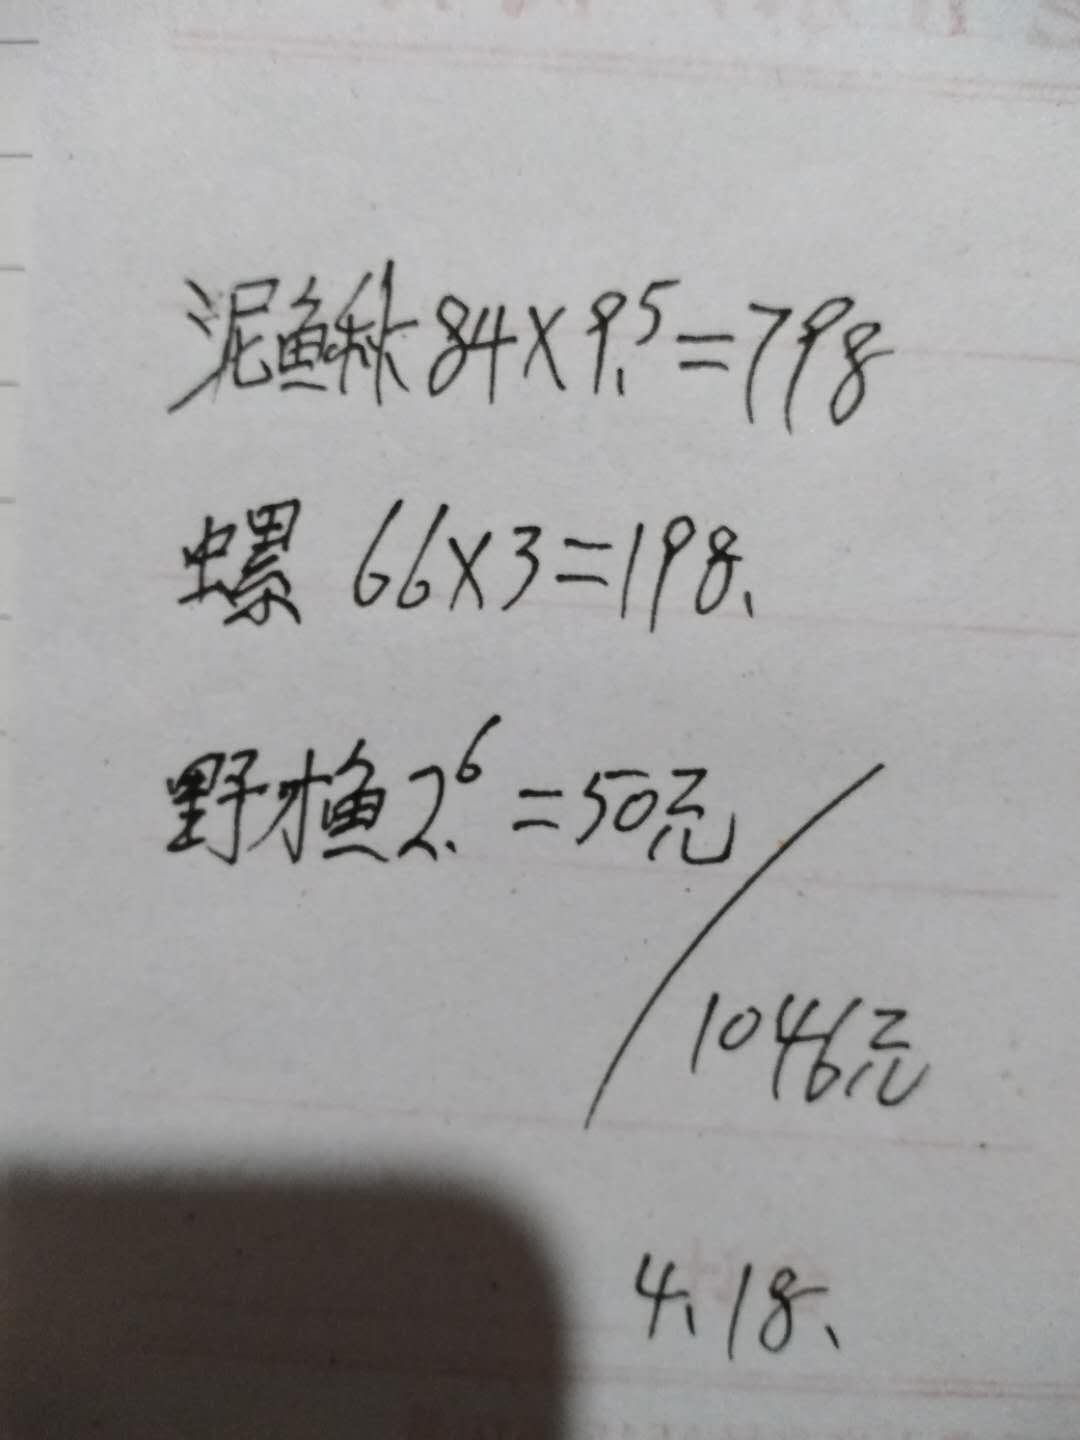 泥鳅84×9.5=798
螺 66×3=198.
野渔2.6=50元
1046元
4.18.